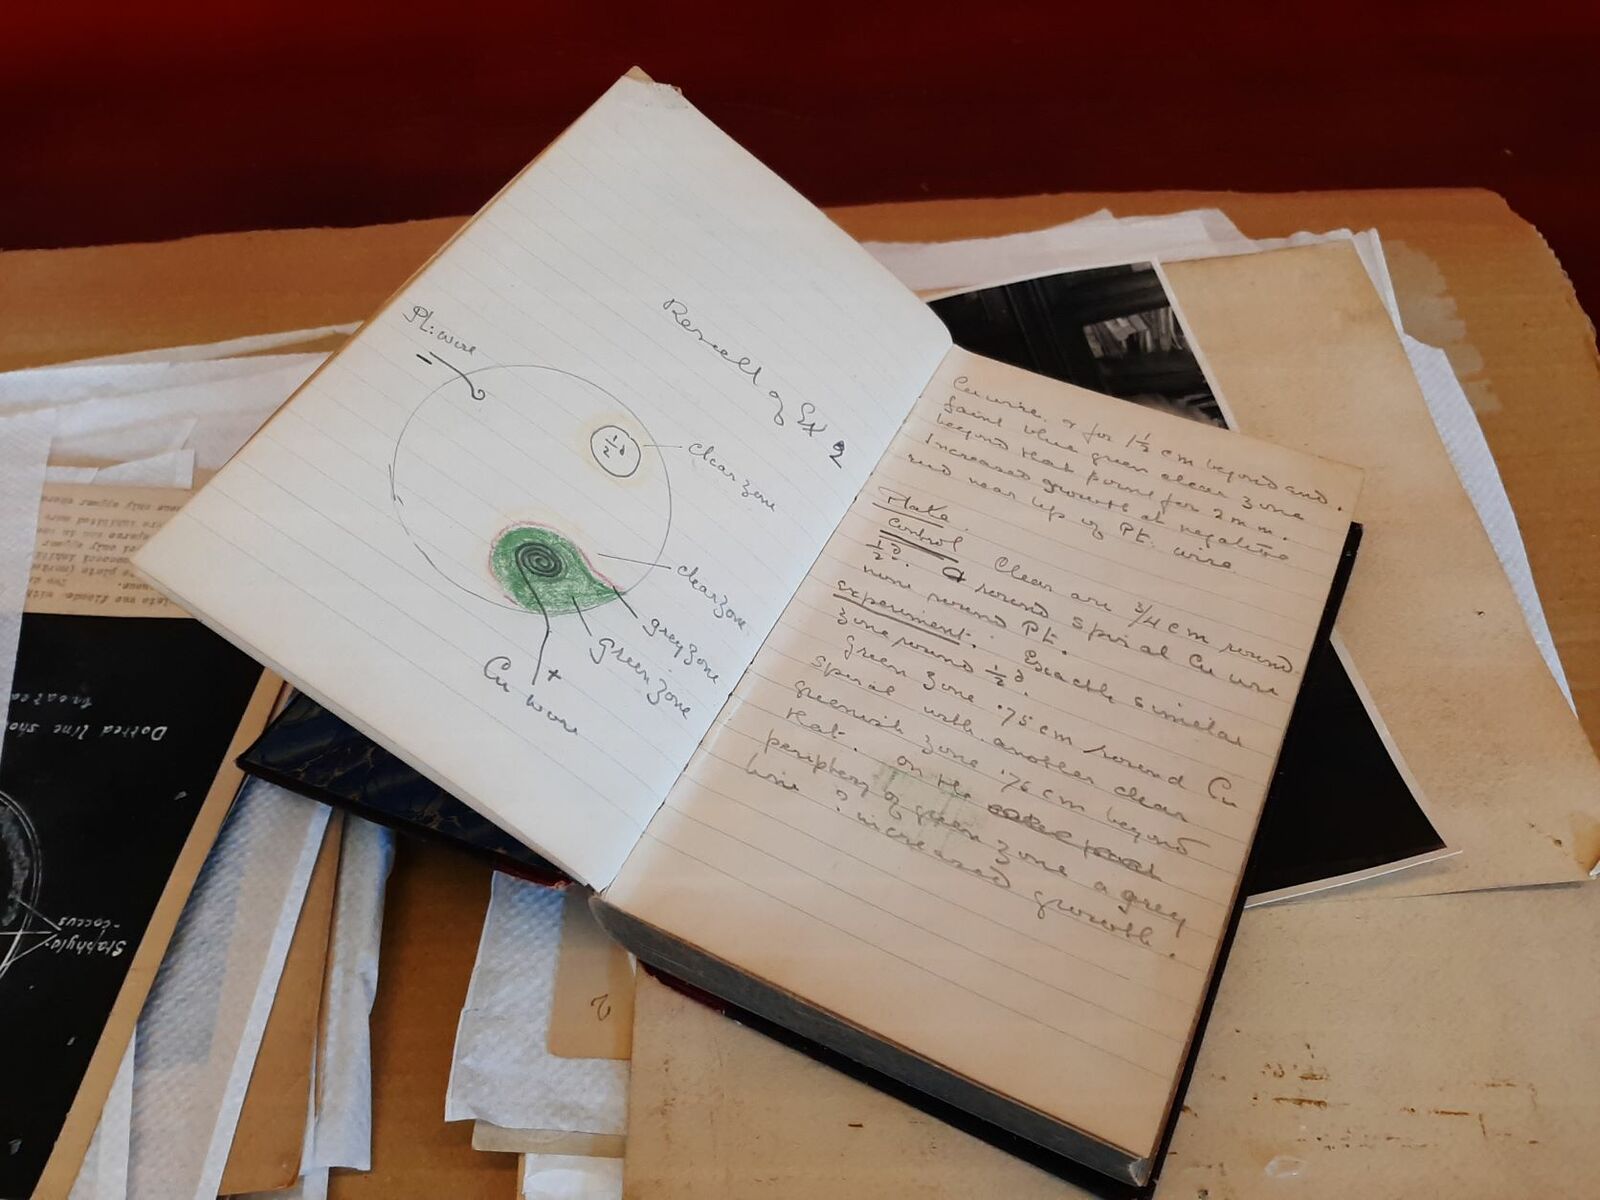 Result of Ex 2
Pt. wire
-
½d
clear zone
clear zone
grey zone
green zone
+
Cu wire
Cu wire & for 1½ cm beyond and
faint blue green clear zone
beyond that point for 2 mm.
Increased growth at negative
end near tip of Pt. wire
Plate
Control Clear are ¾ cm round
½d. a round spiral Cu wire
none round Pt.
experiment. Exactly similar
zone round ½d.
Green zone .75 cm round Cu
spiral with another clear
greenish zone .76 cm beyond
that. On the
periphery of green zone a grey
line ? increased growth.
Dotted line sho
Staphylo-
-coccus
2